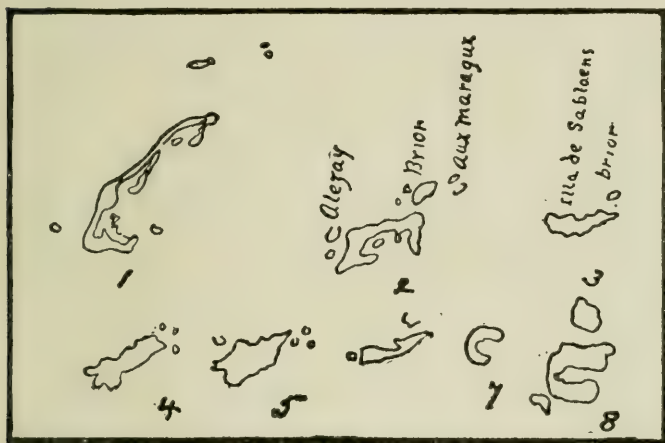 1
Alezaÿ
Brion
aux maraqux
2
de Sablaens
brion
3
4
5
7
8